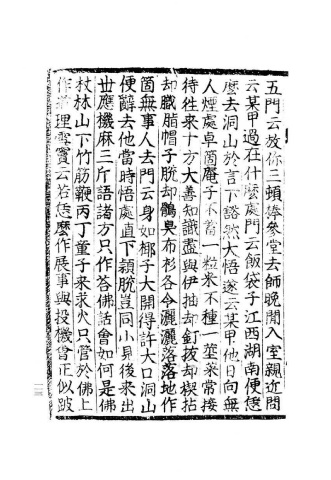 五門云放你三頓棒參堂去師晚間入室親近問
云某甲過在什麽處門云飯袋子江西湖南便恁
麽去洞山於言下豁然大悟遂云某甲他日向無
人煙處卓箇庵子不蓄一粒米不種一莖菜常接
待往來十方大善知識盡與伊抽却釘拔却楔拈
却膱脂帽子脫却鶻臭布衫各令灑灑落落地作
箇無事人去門云身如椰子大開得許大口洞山
便辭去他當時悟處直下穎脫豈同小見後來出
世應機麻三斤語諸方只作荅佛話會如何是佛
杖林山下竹筋鞭丙丁童子來求火只管於佛上
作道理雪竇云若恁麽作展事與投機會正似跛